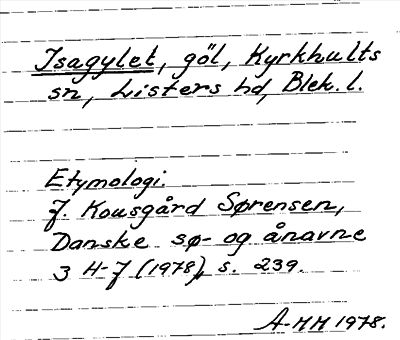 Isagylet, göl, Kyrkhults
sn, Listers hd, Blek. l.
Etymologi.
J. Kousgård Sørensen,
Danske sø- og ånavne
3 H-J (1978), s. 239.
A-MH 1978.